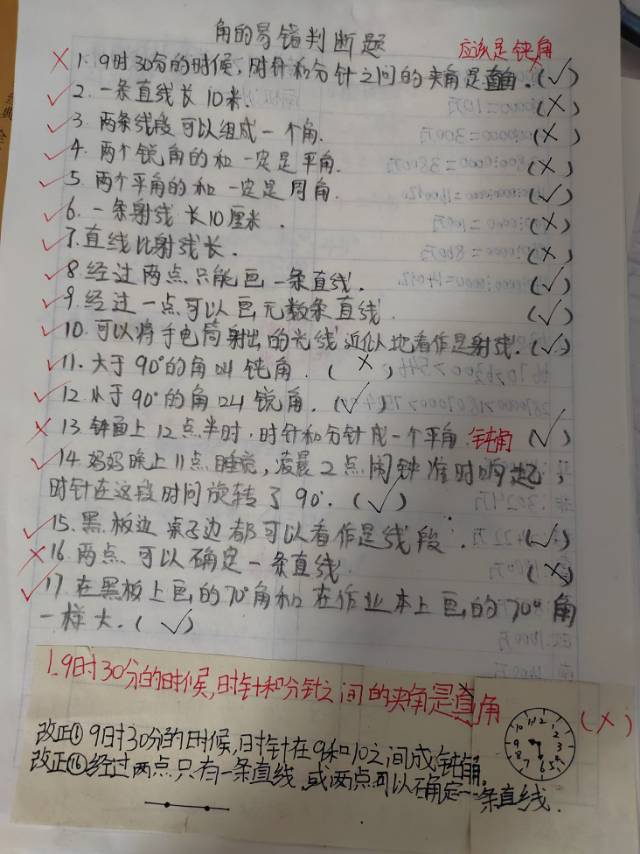 角的易错判断题
应该是钝角
× 1. 9时30分的时候,时针和分针之间的夹角是直角.(√)
✓ 2. 一条直线长10米. (×)
✓ 3. 两条线段可以组成一个角. (×)
✓ 4. 两个锐角的和一定是平角. (×)
✓ 5. 两个平角的和一定是周角. (√)
✓ 6. 一条射线长10厘米. (×)
✓ 7. 直线比射线长. (×)
✓ 8. 经过两点只能画一条直线. (√)
✓ 9. 经过一点可以画无数条直线. (√)
✓ 10. 可以将手电筒射出的光线近似地看作是射线.(√)
✓ 11. 大于90°的角叫钝角.(×)
✓ 12. 小于90°的角叫锐角.(√)
× 13. 钟面上12点半时,时针和分针成一个平角.钝角(√)
✓ 14. 妈妈晚上11点睡觉,凌晨2点闹钟准时响起,
时针在这段时间旋转了90°.(√)
✓ 15. 黑板边桌子边都可以看作是线段.(√)
× 16. 两点可以确定一条直线. (×)
✓ 17. 在黑板上画的70°角和在作业本上画的70°角
一样大.(√)
1.9时30分的时候,时针和分针之间的夹角是直角 (×)
改正① 9时30分的时候,时针在9和10之间成钝角。
改正⑯ 经过两点只有一条直线或两点可以确定一条直线.